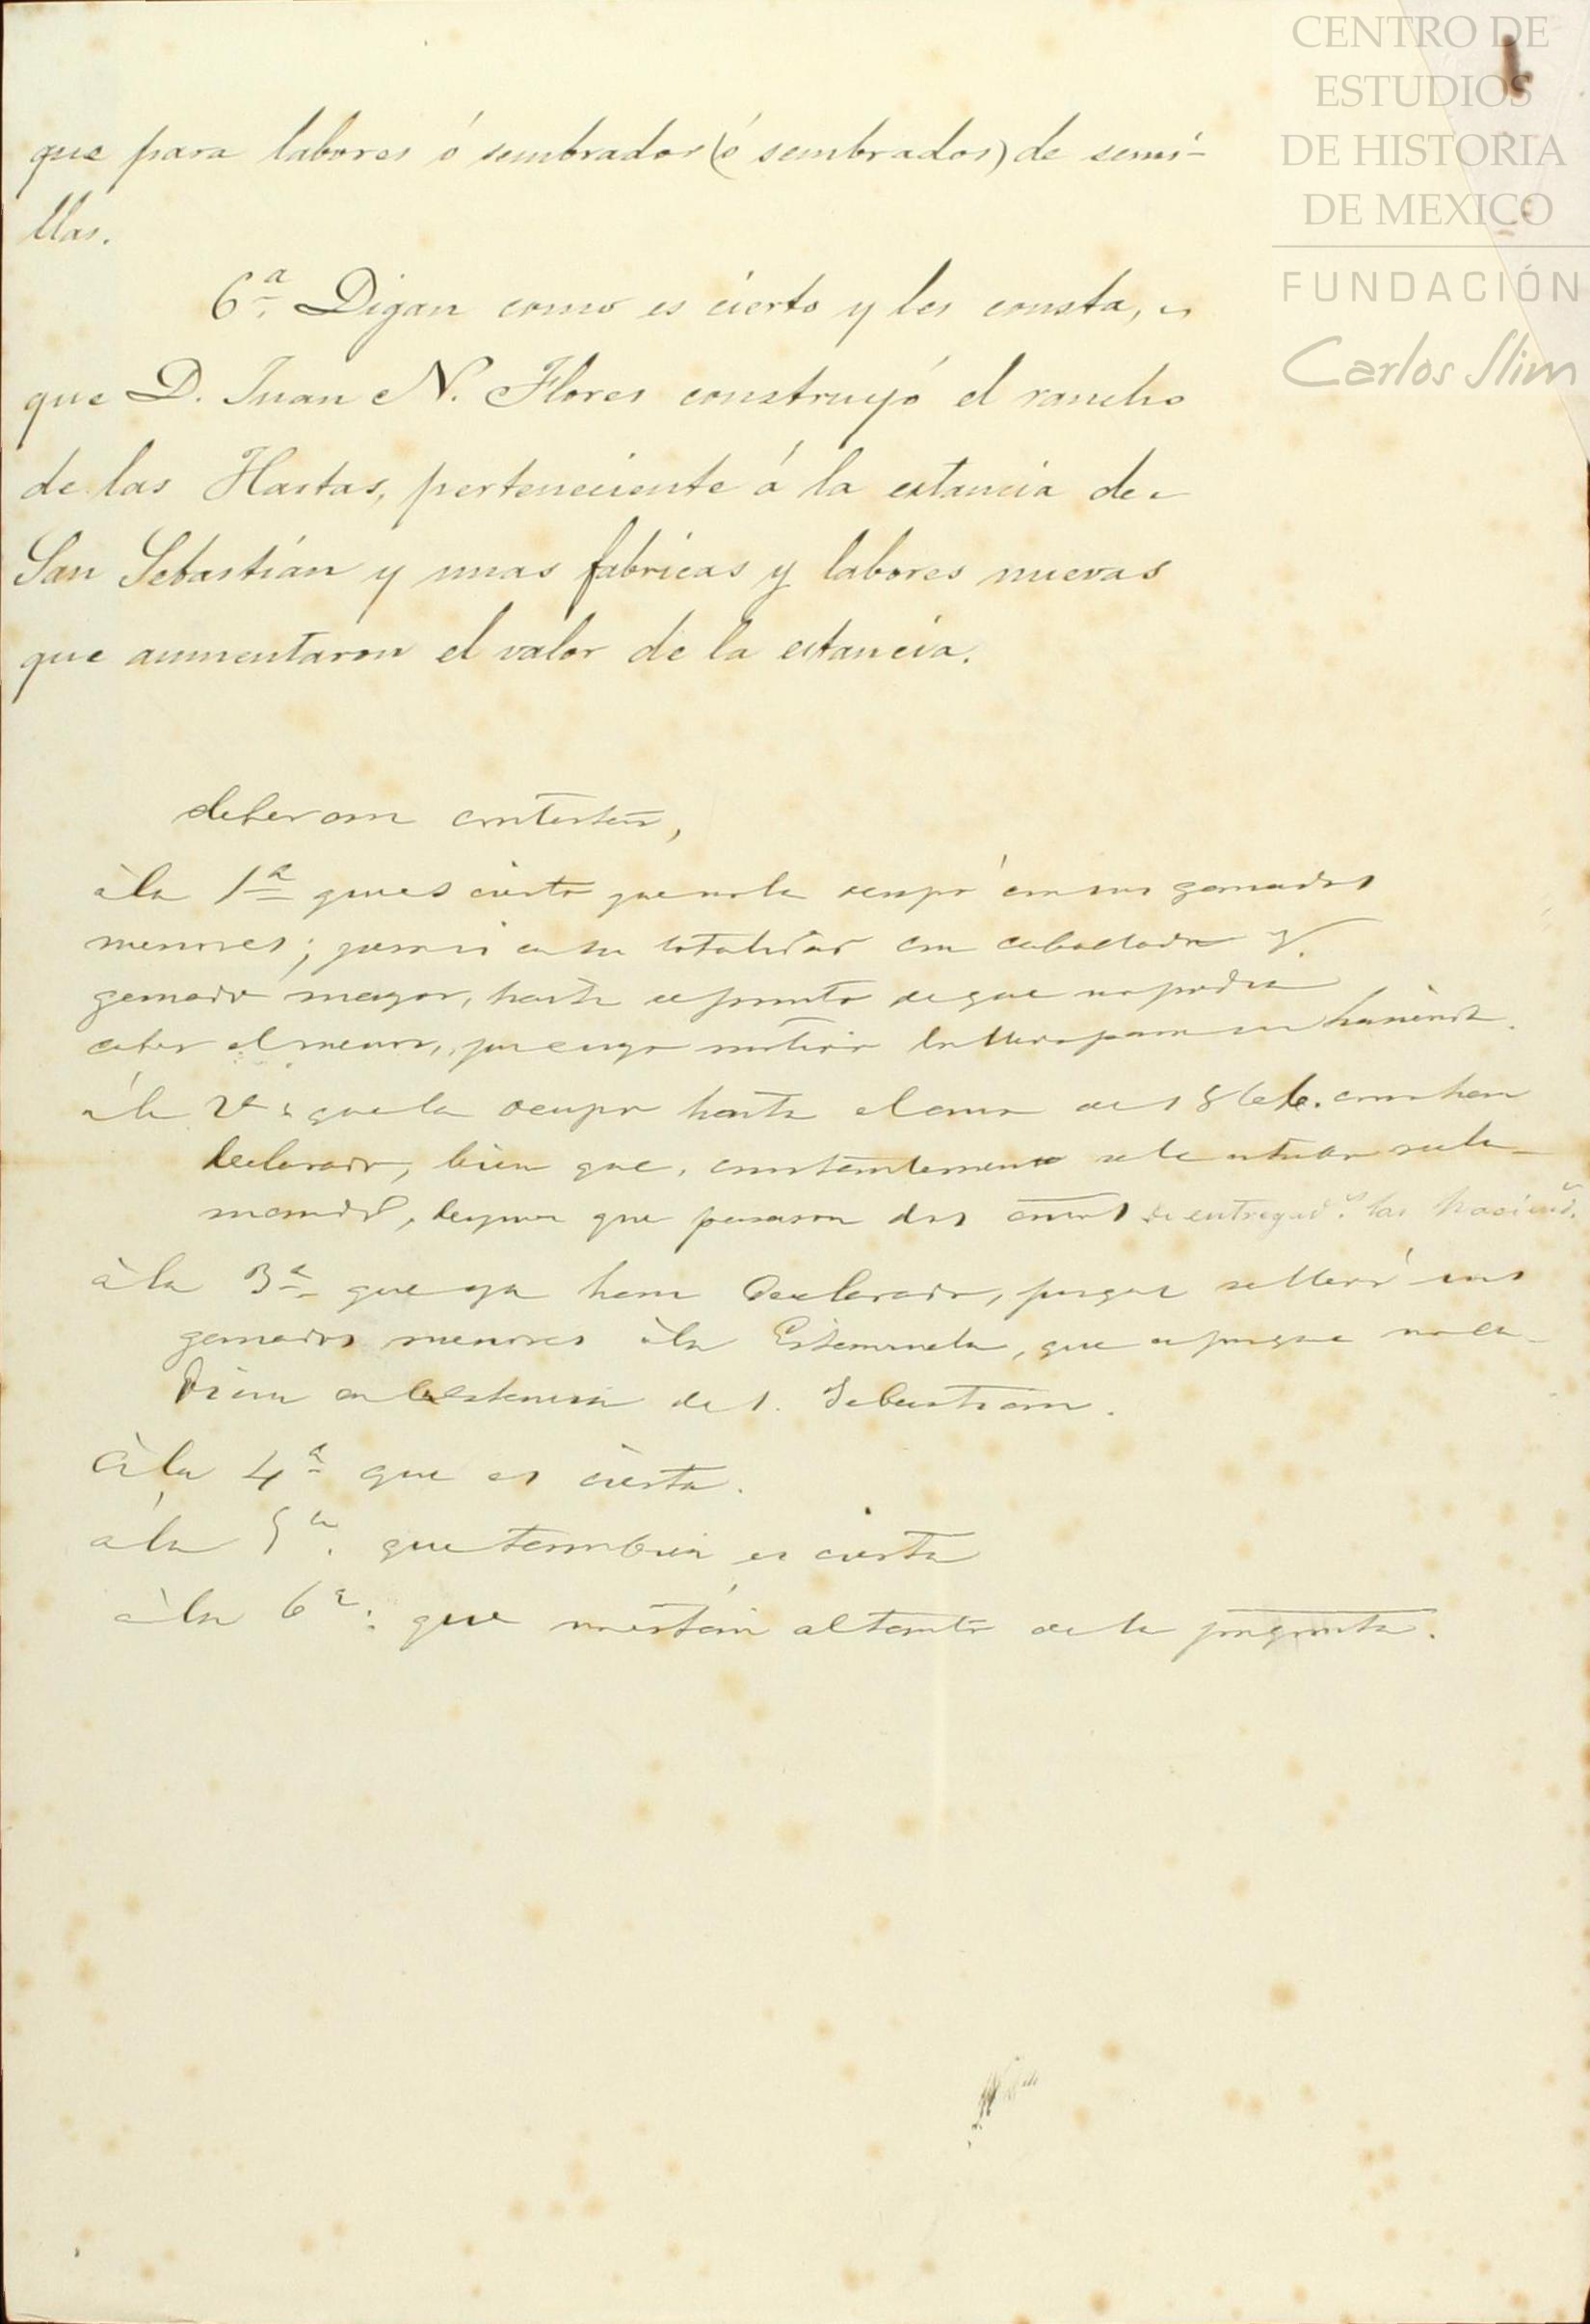 CENTRO DE
ESTUDIOS
DE HISTORIA
DE MEXICO
FUNDACIÓN
Carlos Slim
que para labores ó sembrados (ó sembrados) de semi-
llas.
6ª Digan como es cierto y les consta,
que D. Juan N. Flores construyó el rancho
de las Hastas, perteneciente á la estancia de
San Sebastián y unas fabricas y labores nuevas
que aumentaron el valor de la estancia.
deberan contestar,
à la 1ª que es cierto que no la ocupó con sus ganados
menores; pero si en su totalidad con caballada y
ganado mayor, hasta el punto de que no podia
caber el menor, por cuyo motivo lo llevo para su hacienda.
á la 2ª que la ocupo hasta el año de 1866. como han
declarado, bien que, constantemente se le estubo recla-
mando, despues que pasaron dos años de entregad.s las haciend.s
à la 3ª que ya han declarado, porque se llevó sus
ganados menores à la Estanzuela, que es porque no ca-
bian en la Estancia de S. Sebastian.
à la 4ª que es cierta.
à la 5ª. que tambien es cierta
à la 6ª: que no están al tanto de la pregunta.